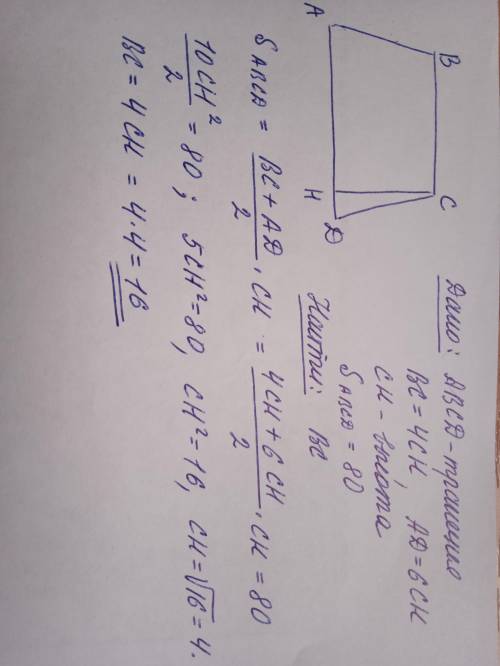 A B C H D
Дано: ABCD-трапеция
BC = 4CH, AD = 6CH
CH - высота
S ABCD = 80
Найти: BC
S ABCD = \frac{BC + AD}{2} · CH = \frac{4CH + 6CH}{2} · CH = 80
\frac{10CH²}{2} = 80; 5CH² = 80, CH² = 16, CH = √16 = 4.
BC = 4CH = 4·4 = 16